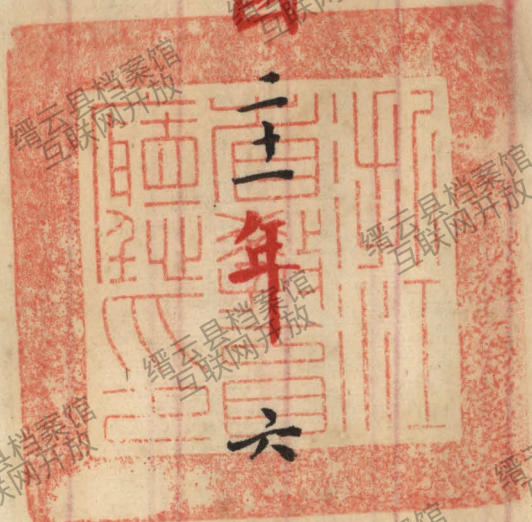 二十一年六
浙江
省教育
廳之印
缙云县档案馆
互联网开放
缙云县档案馆
互联网开放
缙云县档案馆
互联网开放